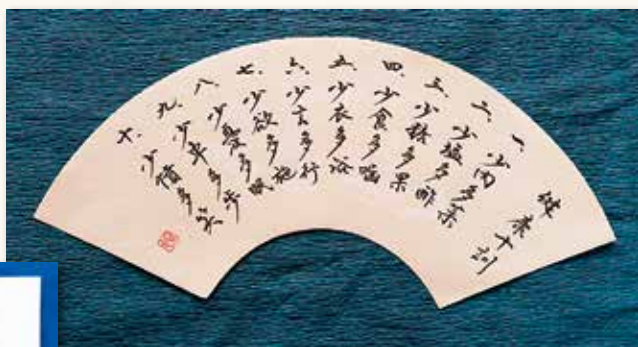 健康十訓
一、少肉多菜
二、少塩多酢
三、少糖多果
四、少食多噛
五、少衣多浴
六、少言多行
七、少欲多施
八、少憂多眠
九、少車多歩
十、少憤多笑